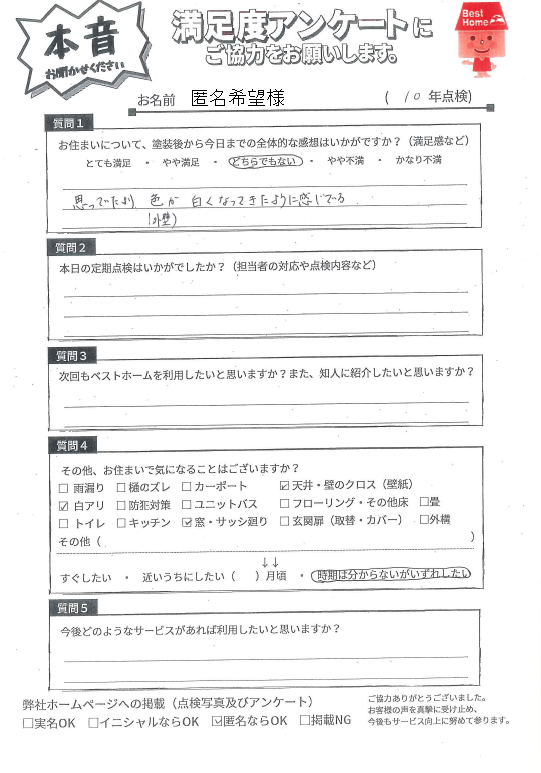 本音
お聞かせください
満足度アンケートに
ご協力をお願いします。
Best
Home
お名前 匿名希望様 ( 10 年点検)
質問1
お住まいについて、塗装後から今日までの全体的な感想はいかがですか？（満足感など）
とても満足 ・ やや満足 ・ どちらでもない ・ やや不満 ・ かなり不満
思っていたより、色が白くなってきたように感じている
(外壁)
質問2
本日の定期点検はいかがでしたか？（担当者の対応や点検内容など）
質問3
次回もベストホームを利用したいと思いますか？また、知人に紹介したいと思いますか？
質問4
その他、お住まいで気になることはございますか？
☐ 雨漏り ☐ 樋のズレ ☐ カーポート ☑ 天井・壁のクロス（壁紙）
☑ 白アリ ☐ 防犯対策 ☐ ユニットバス ☐ フローリング・その他床 ☐畳
☐ トイレ ☐ キッチン ☑ 窓・サッシ廻り ☐ 玄関扉（取替・カバー） ☐外構
その他（ ）
↓↓
すぐしたい ・ 近いうちにしたい（ ）月頃 ・ 時期は分からないがいずれしたい
質問5
今後どのようなサービスがあれば利用したいと思いますか？
弊社ホームページへの掲載（点検写真及びアンケート）
☐実名OK ☐イニシャルならOK ☑匿名ならOK ☐掲載NG
ご協力ありがとうございました。
お客様の声を真摯に受け止め、
今後もサービス向上に努めて参ります。